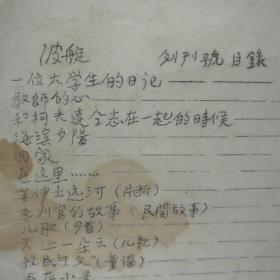 波艇 创刊號目錄
一位大学生的日记
教師的心
和柯夫達仝志在一起的時候
海滨夕陽
回家
這里……
伊士远河（片断）
李列官的故事（民間故事）
儿歌（9首）
天上一朵云（儿歌）
救民主义（童谣）